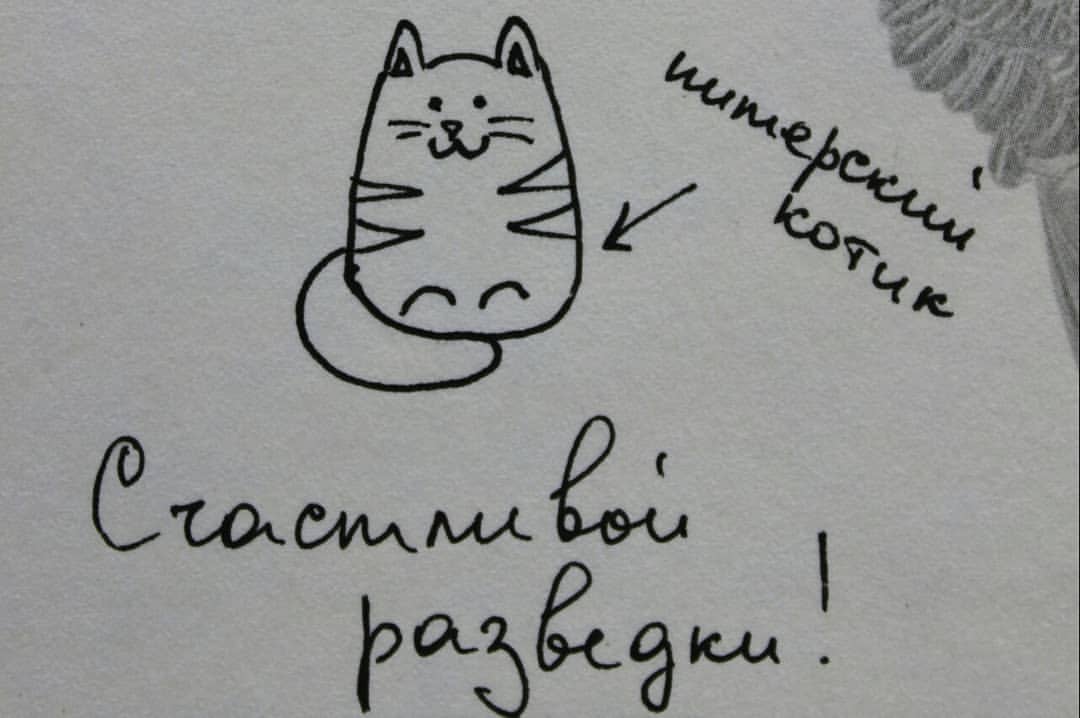 питерский
котик
Счастливой
разведки!